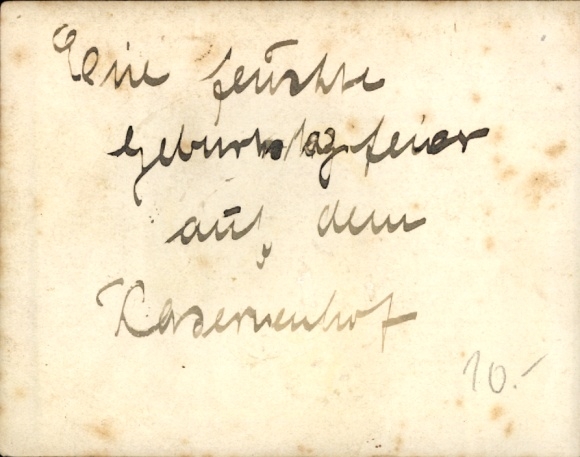 Eine feuchte
Geburtstagsfeier
auf dem
Kasernenhof
10.-